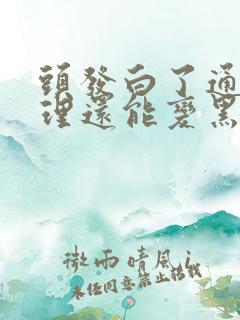 頭發白了通
理還能變黑
微雨晴风i
未任同意禁止轉載